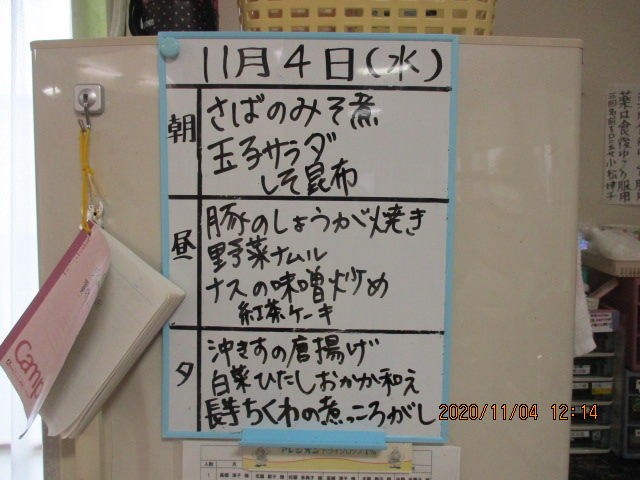 11月4日(水)
朝
さばのみそ煮
玉子サラダ
しそ昆布
昼
豚のしょうが焼き
野菜ナムル
ナスの味噌炒め
紅茶ケーキ
夕
沖きすの唐揚げ
白菜ひたしおかか和え
長芋ちくわの煮っころがし
Camp
2020/11/04 12:14